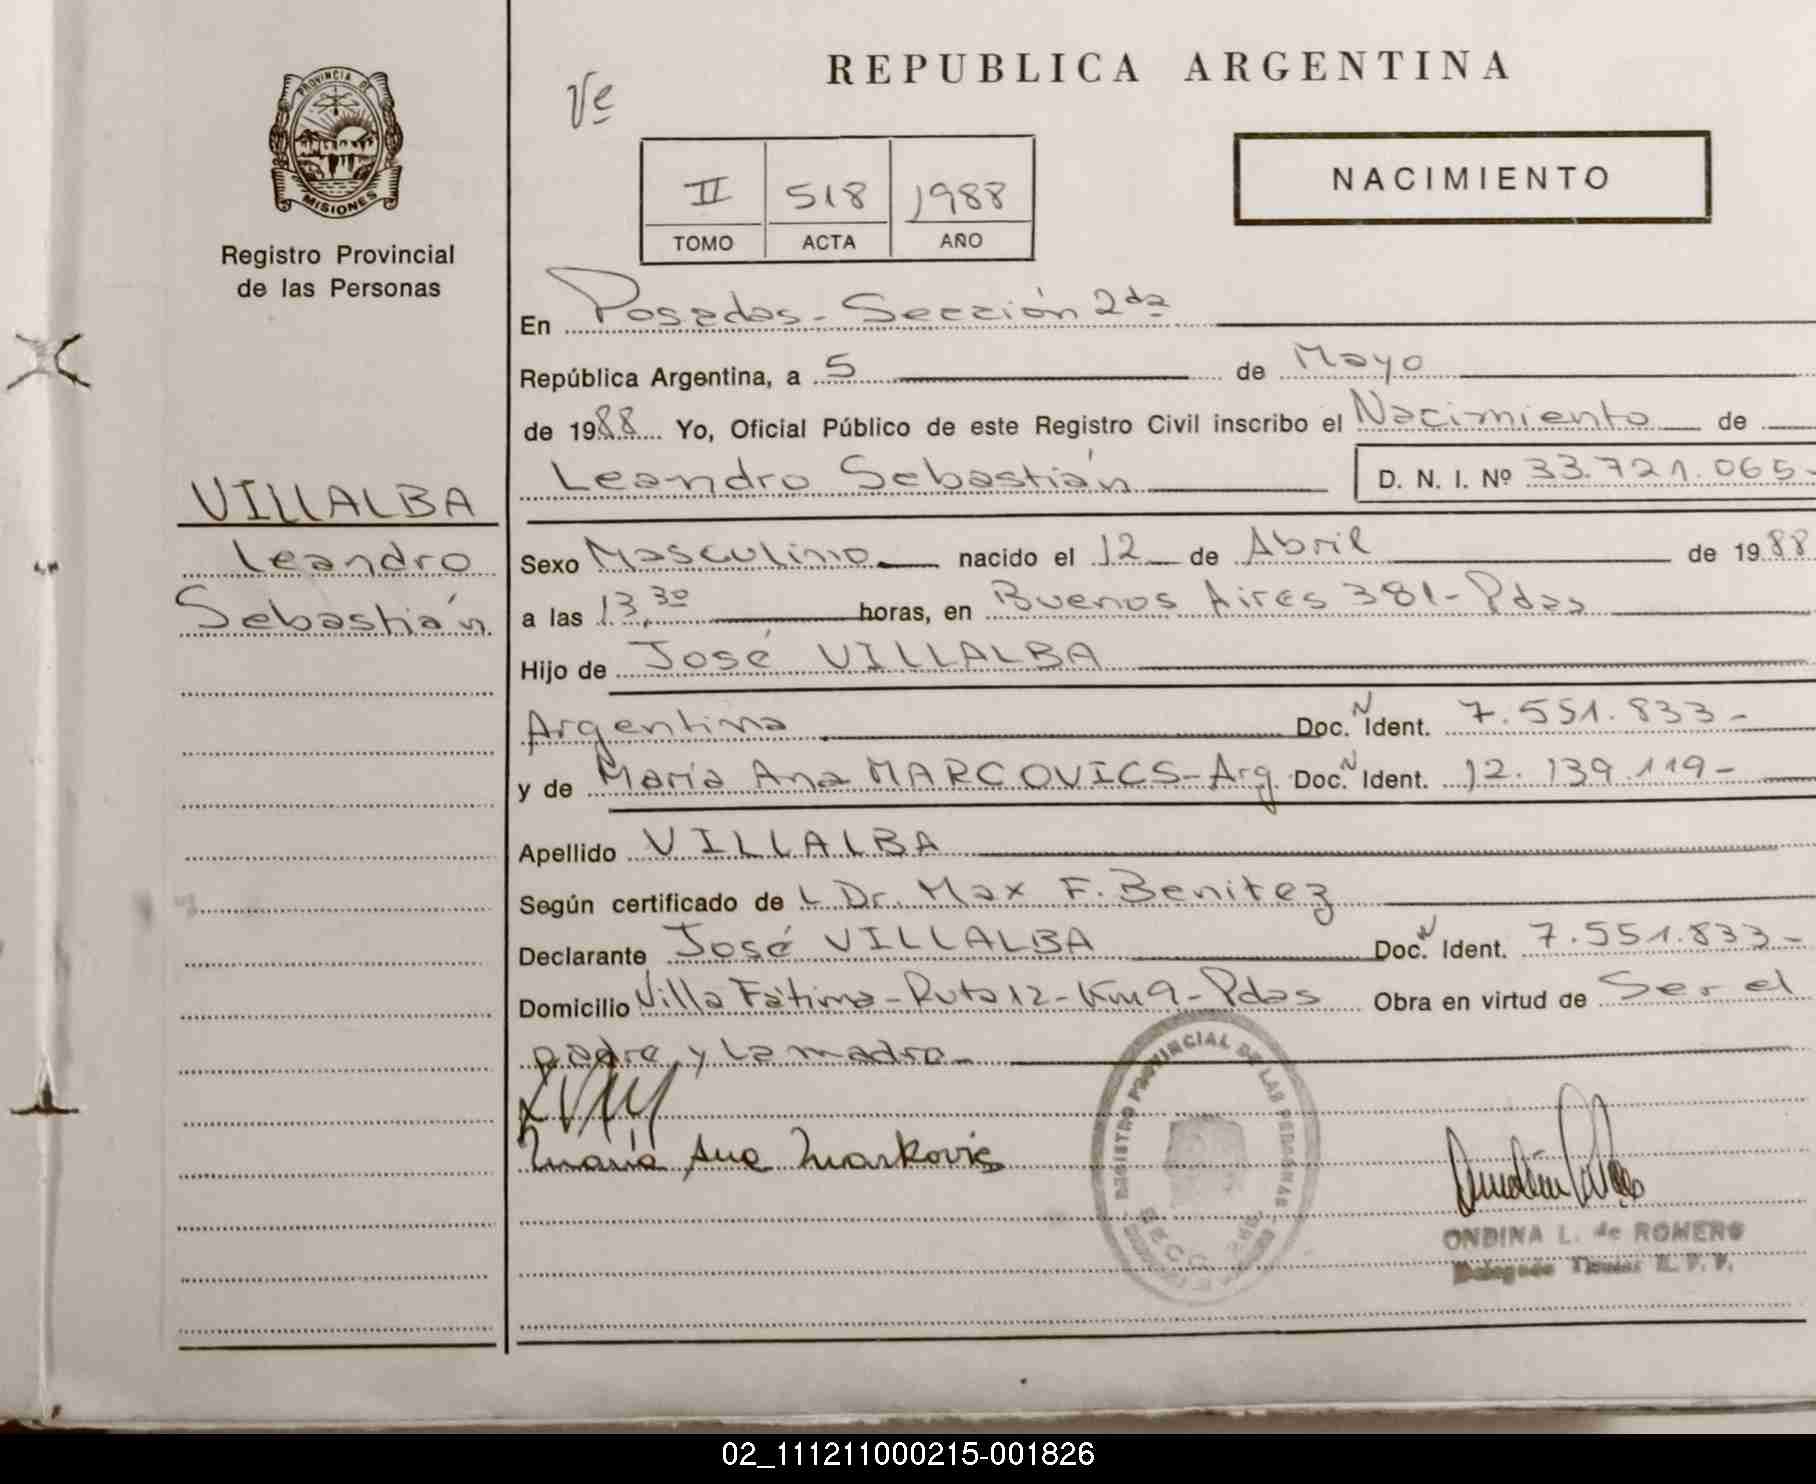 PROVINCIA DE
MISIONES
Registro Provincial
de las Personas
VILLALBA
Leandro
Sebastián
REPUBLICA ARGENTINA
Vº
II 518 1988
TOMO ACTA AÑO
NACIMIENTO
En Posadas - Sección 2da
República Argentina, a 5 de Mayo
de 1988 Yo, Oficial Público de este Registro Civil inscribo el Nacimiento de
Leandro Sebastián D. N. I. Nº 33.721.065-
Sexo Masculino nacido el 12 de Abril de 1988
a las 13,30 horas, en Buenos Aires 381- Pdas
Hijo de José VILLALBA
Argentina Doc. N Ident. 7.551.833-
y de María Ana MARCOVICS- Arg. Doc. N Ident. 12.139.119-
Apellido VILLALBA
Según certificado de L Dr. Max F. Benitez
Declarante José VILLALBA Doc. N Ident. 7.551.833-
Domicilio Villa Fátima - Ruta 12 - Km 9 - Pdas Obra en virtud de Ser el
padre y la madre
María Ana Markovis
REGISTRO PROVINCIAL DE LAS PERSONAS
SECC.
ONDINA L. de ROMERO
02_111211000215-001826